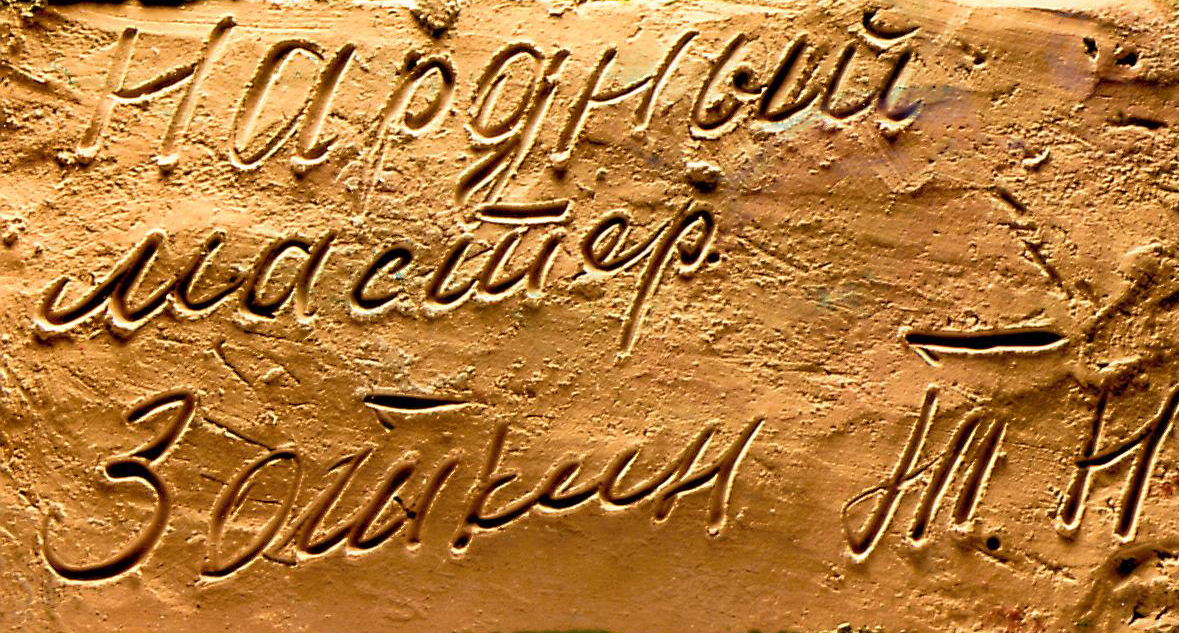 Нардный
мастер
Зоткин Т. Н